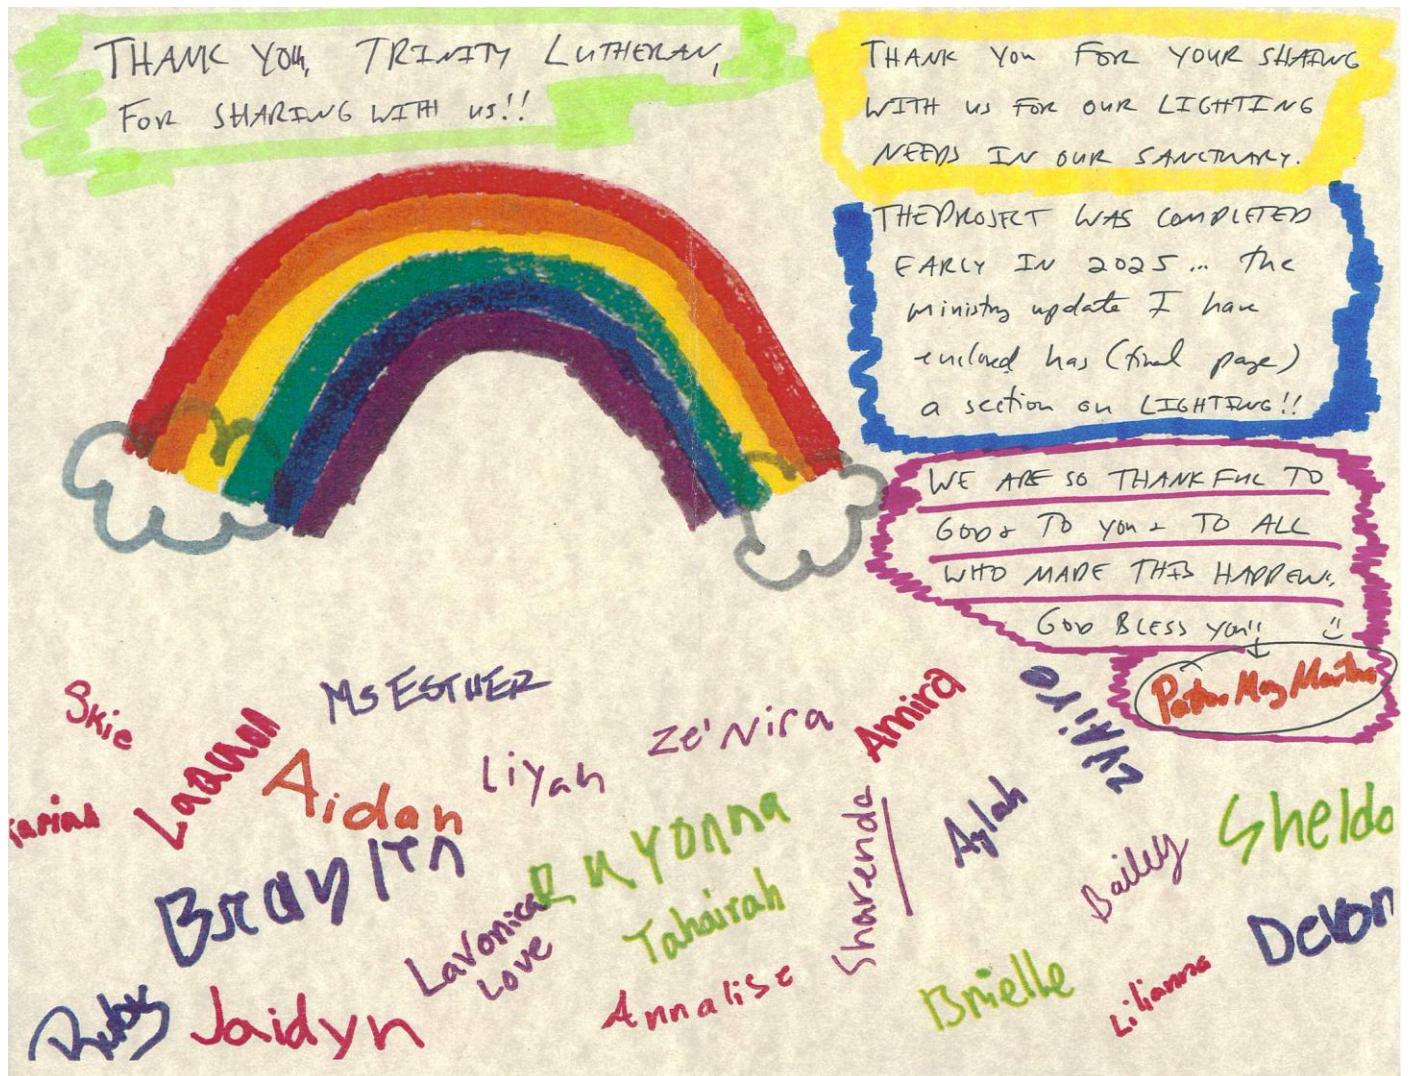 THANK YOU, TRINITY LUTHERAN,
FOR SHARING WITH US!!
THANK YOU FOR YOUR SHARING
WITH US FOR OUR LIGHTING
NEEDS IN OUR SANCTUARY.
THE PROJECT WAS COMPLETED
EARLY IN 2025... the
ministry update I have
enclosed has (final page)
a section on LIGHTING!!
WE ARE SO THANKFUL TO
GOD & TO YOU & TO ALL
WHO MADE THIS HAPPEN.
GOD BLESS YOU!!
Pastor
Skie
Ms ESTHER
Ze'Nira
Amira
ZyAire
Aidan
Liyah
Sheldo
Rayonna
Sharenda
Aylah
Bailey
Tahairah
LaVonica
Love
Devon
Annalise
Brielle
Lilianna
Ruby
Jaidyn